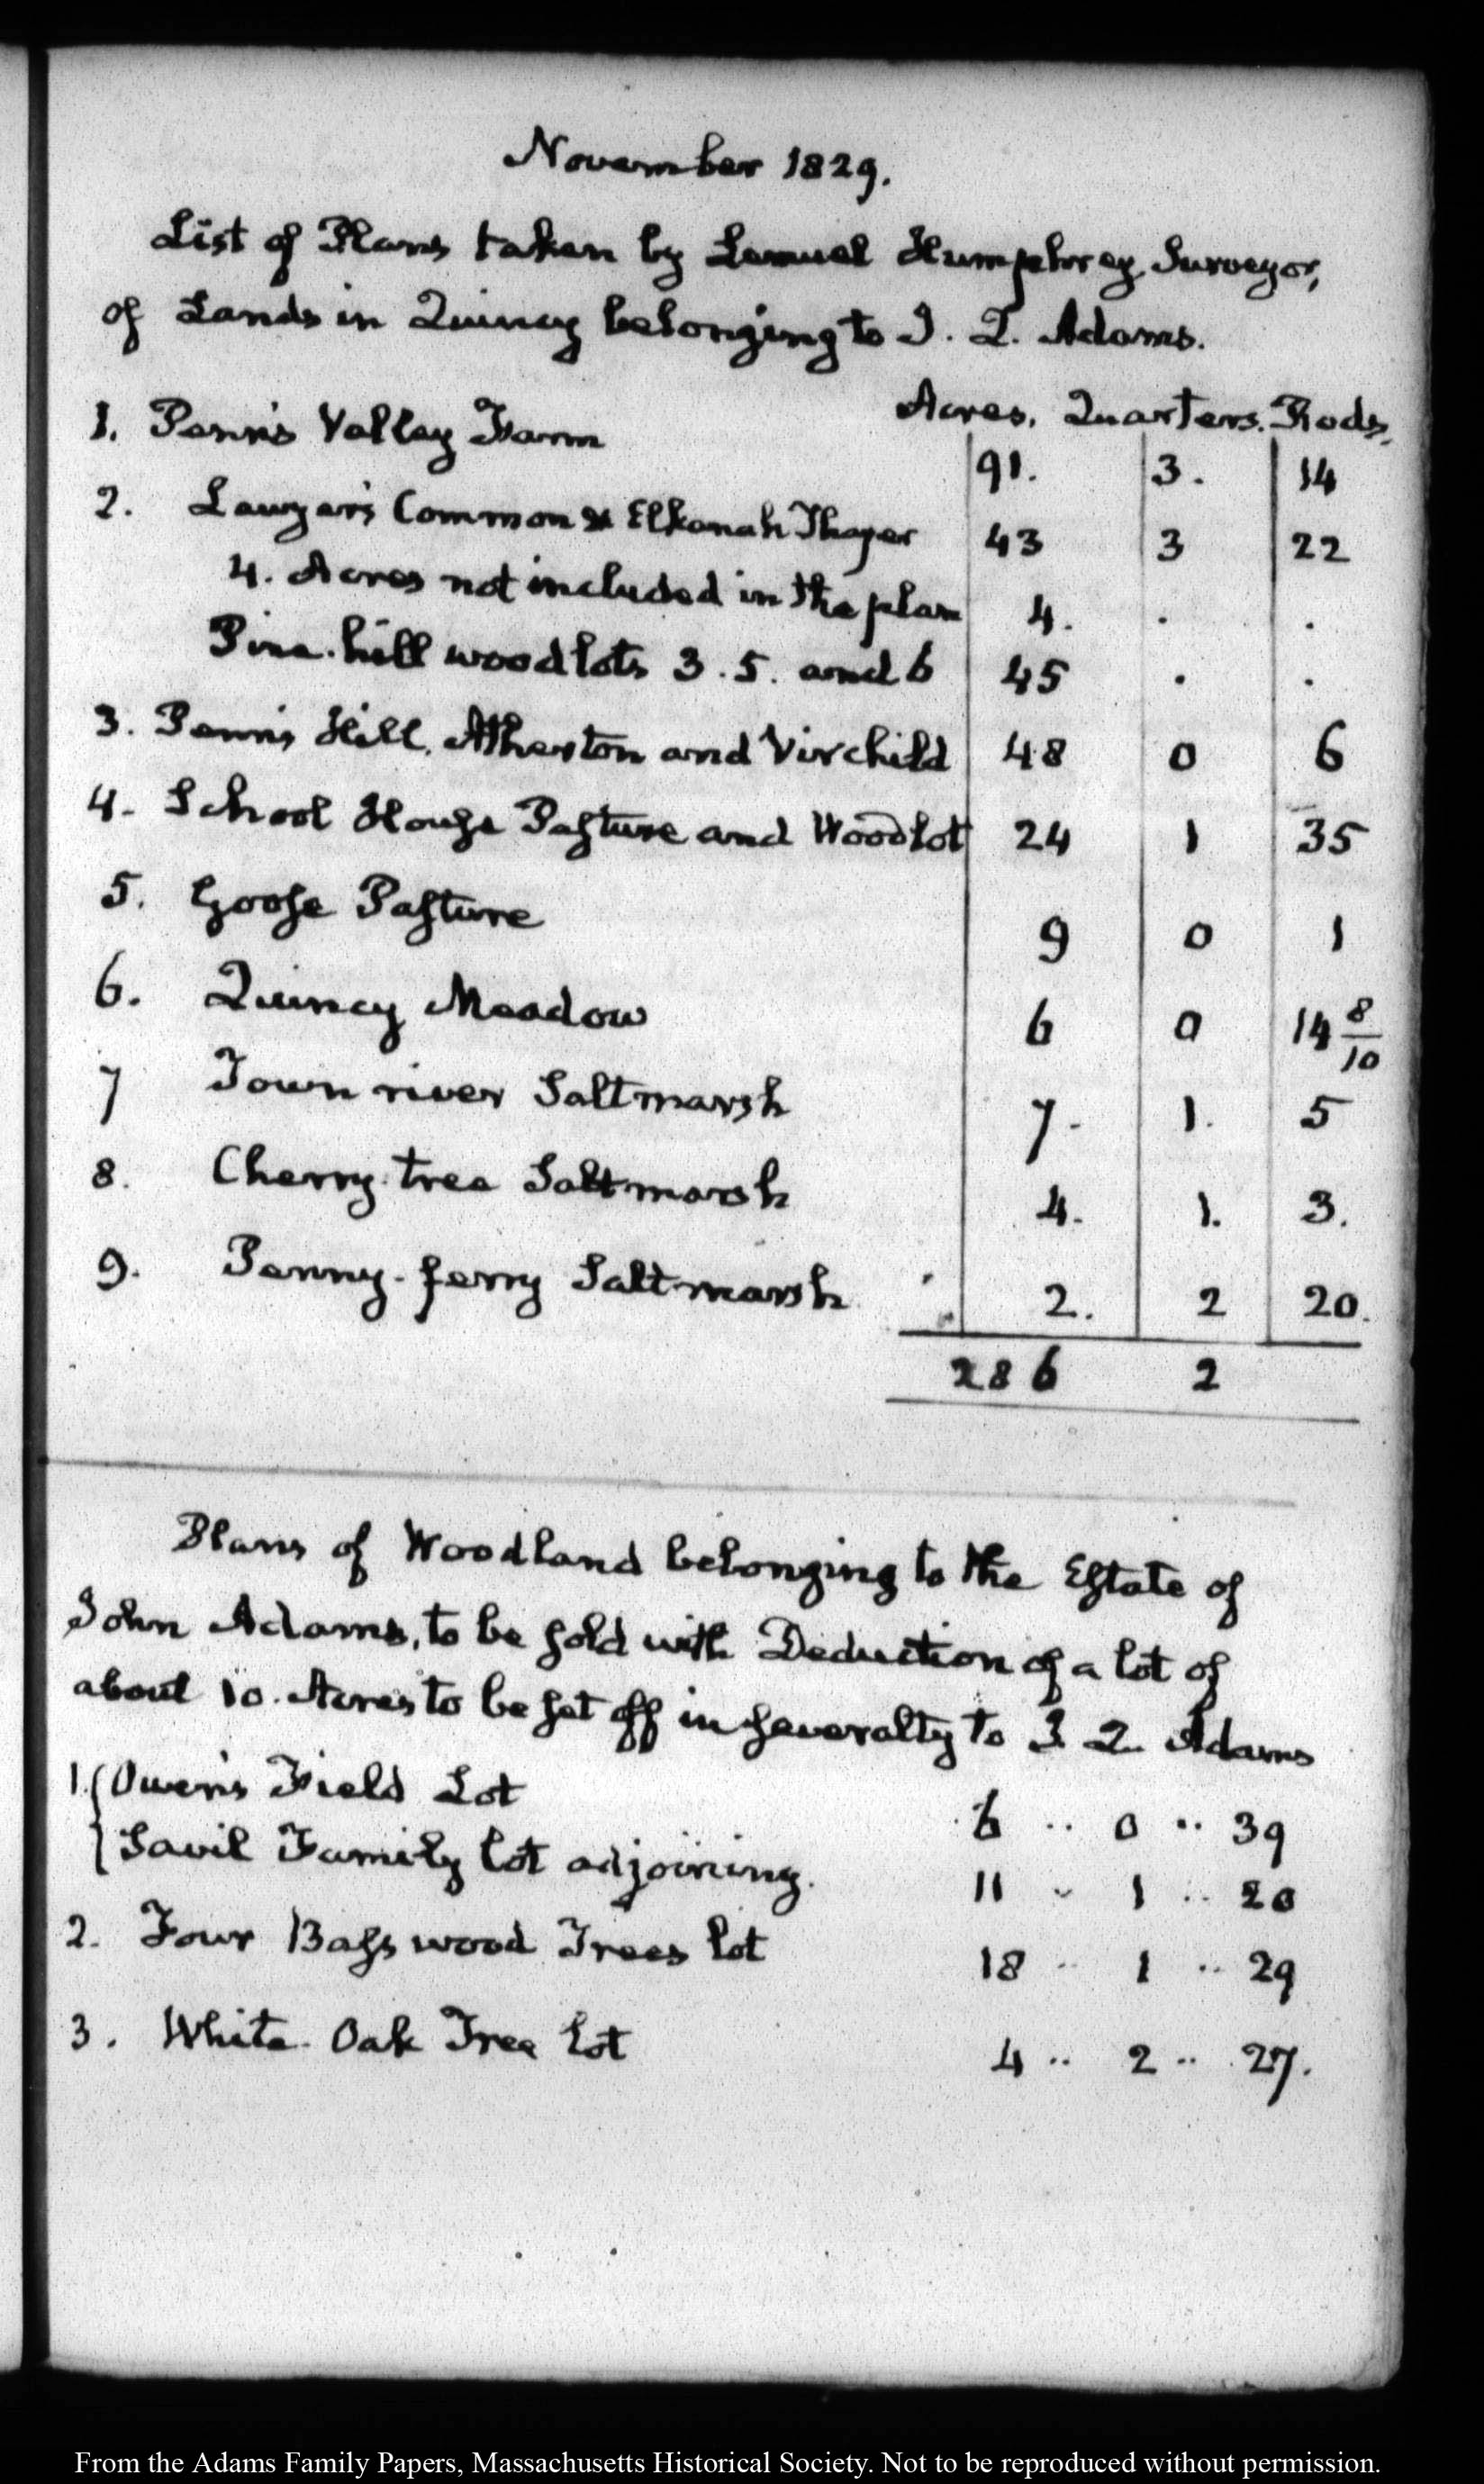 November 1829.
List of Plans taken by Lemuel Humphrey Surveyor,
of Lands in Quincy belonging to J. Q. Adams.
Acres. Quarters. Rods.
1. Penn's Valley Farm 91. 3. 14
2. Lawyer's Common & Elkanah Thayer 43 3 22
4. Acres not included in the plan 4. . .
Pine. hill woodlots 3. 5. and 6 45 . .
3. Penn's Hill. Atherton and Virchild 48 0 6
4. School House Pasture and Woodlot 24 1 35
5. Goose Pasture 9 0 1
6. Quincy Meadow 6 0 14 8/10
7 Town river Saltmarsh 7. 1. 5
8. Cherry tree Saltmarsh 4. 1. 3.
9. Penny-ferry Saltmarsh 2. 2 20.
286 2
Plans of Woodland belonging to the Estate of
John Adams, to be sold with Deduction of a lot of
about 10. Acres to be set off in severalty to J. Q. Adams
1. Owen's Field Lot 6 .. 0 .. 39
Savil Family lot adjoining. 11 .. 1 .. 20
2. Four Bass wood Trees lot 18 .. 1 .. 29
3. White. Oak Tree lot 4 .. 2 .. 27.
From the Adams Family Papers, Massachusetts Historical Society. Not to be reproduced without permission.